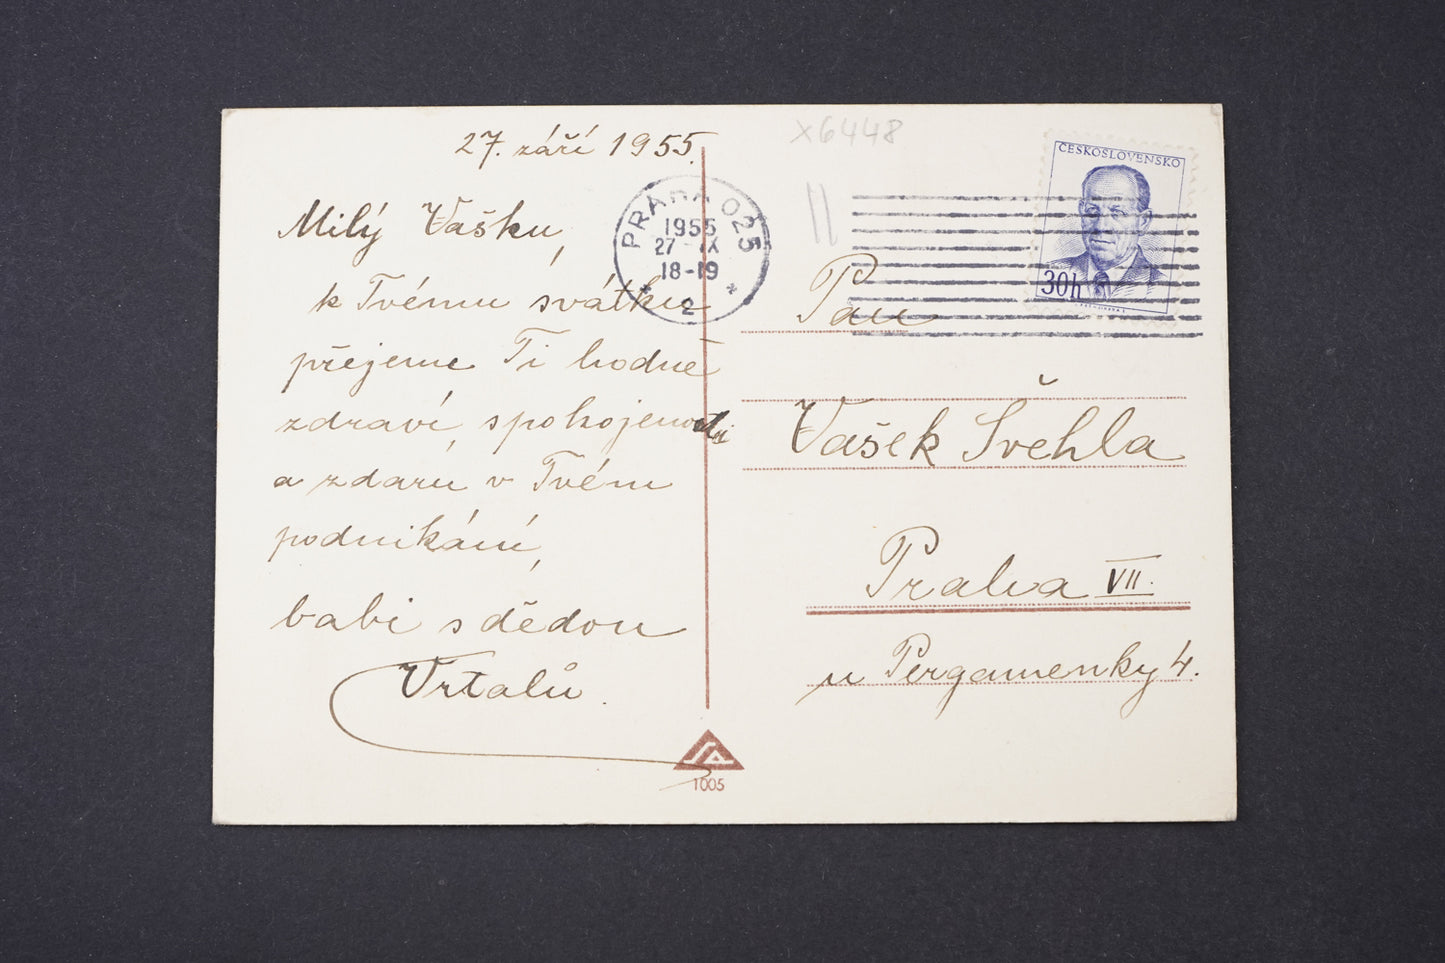 27. září 1955.
Milý Vašku,
k Tvému svátku
přejeme Ti hodně
zdraví, spokojenosti
a zdaru v Tvém
podnikání,
babi s dědou
Vrtalů.
x6448
PRAHA 025
1955
27-IX
18-19
* 2 *
ČESKOSLOVENSKO
30h
Pan
Vašek Švehla
Praha VII.
u Pergamenky 4.
1005